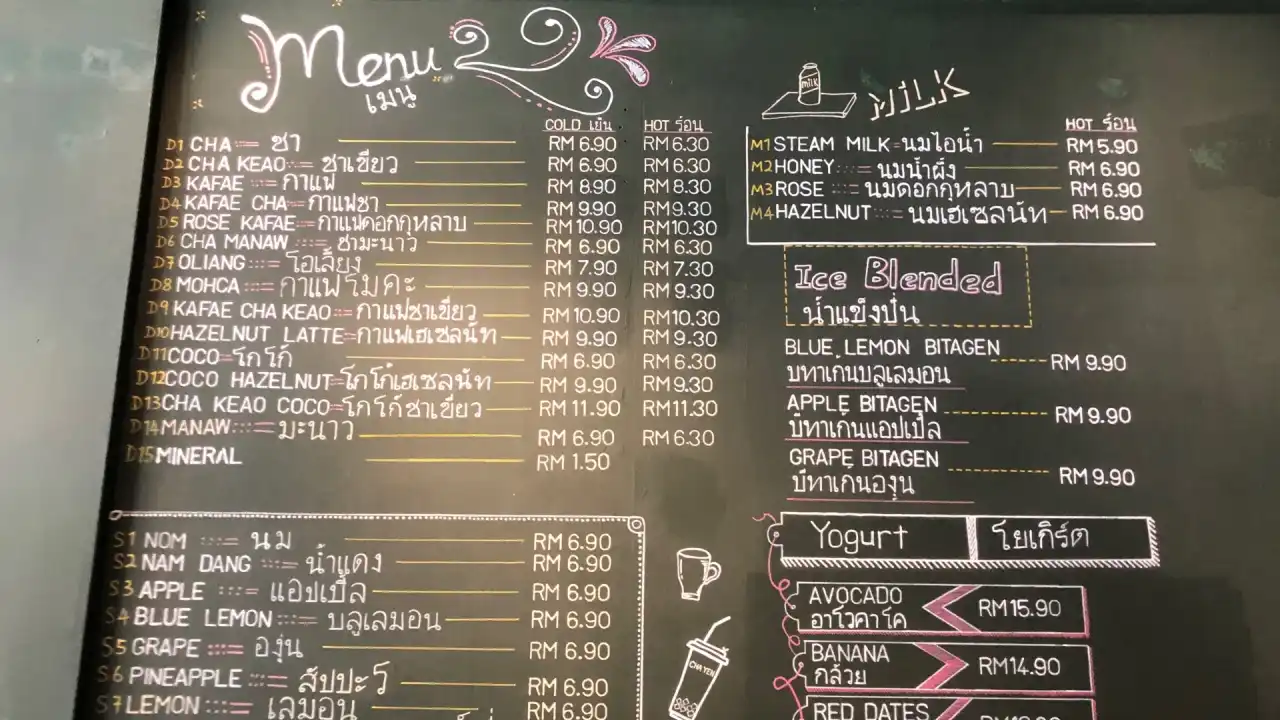 Menu
เมนู
COLD เย็น HOT ร้อน
D1 CHA ชา RM 6.90 RM 6.30
D2 CHA KEAO ชาเขียว RM 6.90 RM 6.30
D3 KAFAE กาแฟ RM 8.90 RM 8.30
D4 KAFAE CHA กาแฟชา RM 9.90 RM 9.30
D5 ROSE KAFAE กาแฟดอกกุหลาบ RM 10.90 RM 10.30
D6 CHA MANAW ชามะนาว RM 6.90 RM 6.30
D7 OLIANG โอเลี้ยง RM 7.90 RM 7.30
D8 MOHCA กาแฟโมคะ RM 9.90 RM 9.30
D9 KAFAE CHA KEAO กาแฟชาเขียว RM 10.90 RM 10.30
D10 HAZELNUT LATTE กาแฟเฮเซลนัท RM 9.90 RM 9.30
D11 COCO โกโก้ RM 6.90 RM 6.30
D12 COCO HAZELNUT โกโก้เฮเซลนัท RM 9.90 RM 9.30
D13 CHA KEAO COCO โกโก้ชาเขียว RM 11.90 RM 11.30
D14 MANAW มะนาว RM 6.90 RM 6.30
D15 MINERAL RM 1.50
S1 NOM นม RM 6.90
S2 NAM DANG น้ำแดง RM 6.90
S3 APPLE แอปเปิ้ล RM 6.90
S4 BLUE LEMON บลูเลมอน RM 6.90
S5 GRAPE องุ่น RM 6.90
S6 PINEAPPLE สัปปะรั RM 6.90
S7 LEMON เลมอน RM 6.90
CHA YEN
milk
HOT ร้อน
M1 STEAM MILK นมไอน้ำ RM 5.90
M2 HONEY นมน้ำผึ้ง RM 6.90
M3 ROSE นมดอกกุหลาบ RM 6.90
M4 HAZELNUT นมเฮเซลนัท RM 6.90
Ice Blended
น้ำแข็งปั่น
BLUE LEMON BITAGEN RM 9.90
บีทาเกนบลูเลมอน
APPLE BITAGEN RM 9.90
บีทาเกนแอปเปิ้ล
GRAPE BITAGEN RM 9.90
บีทาเกนองุ่น
Yogurt โยเกิร์ต
AVOCADO RM 15.90
อาโวคาโด
BANANA RM 14.90
กล้วย
RED DATES